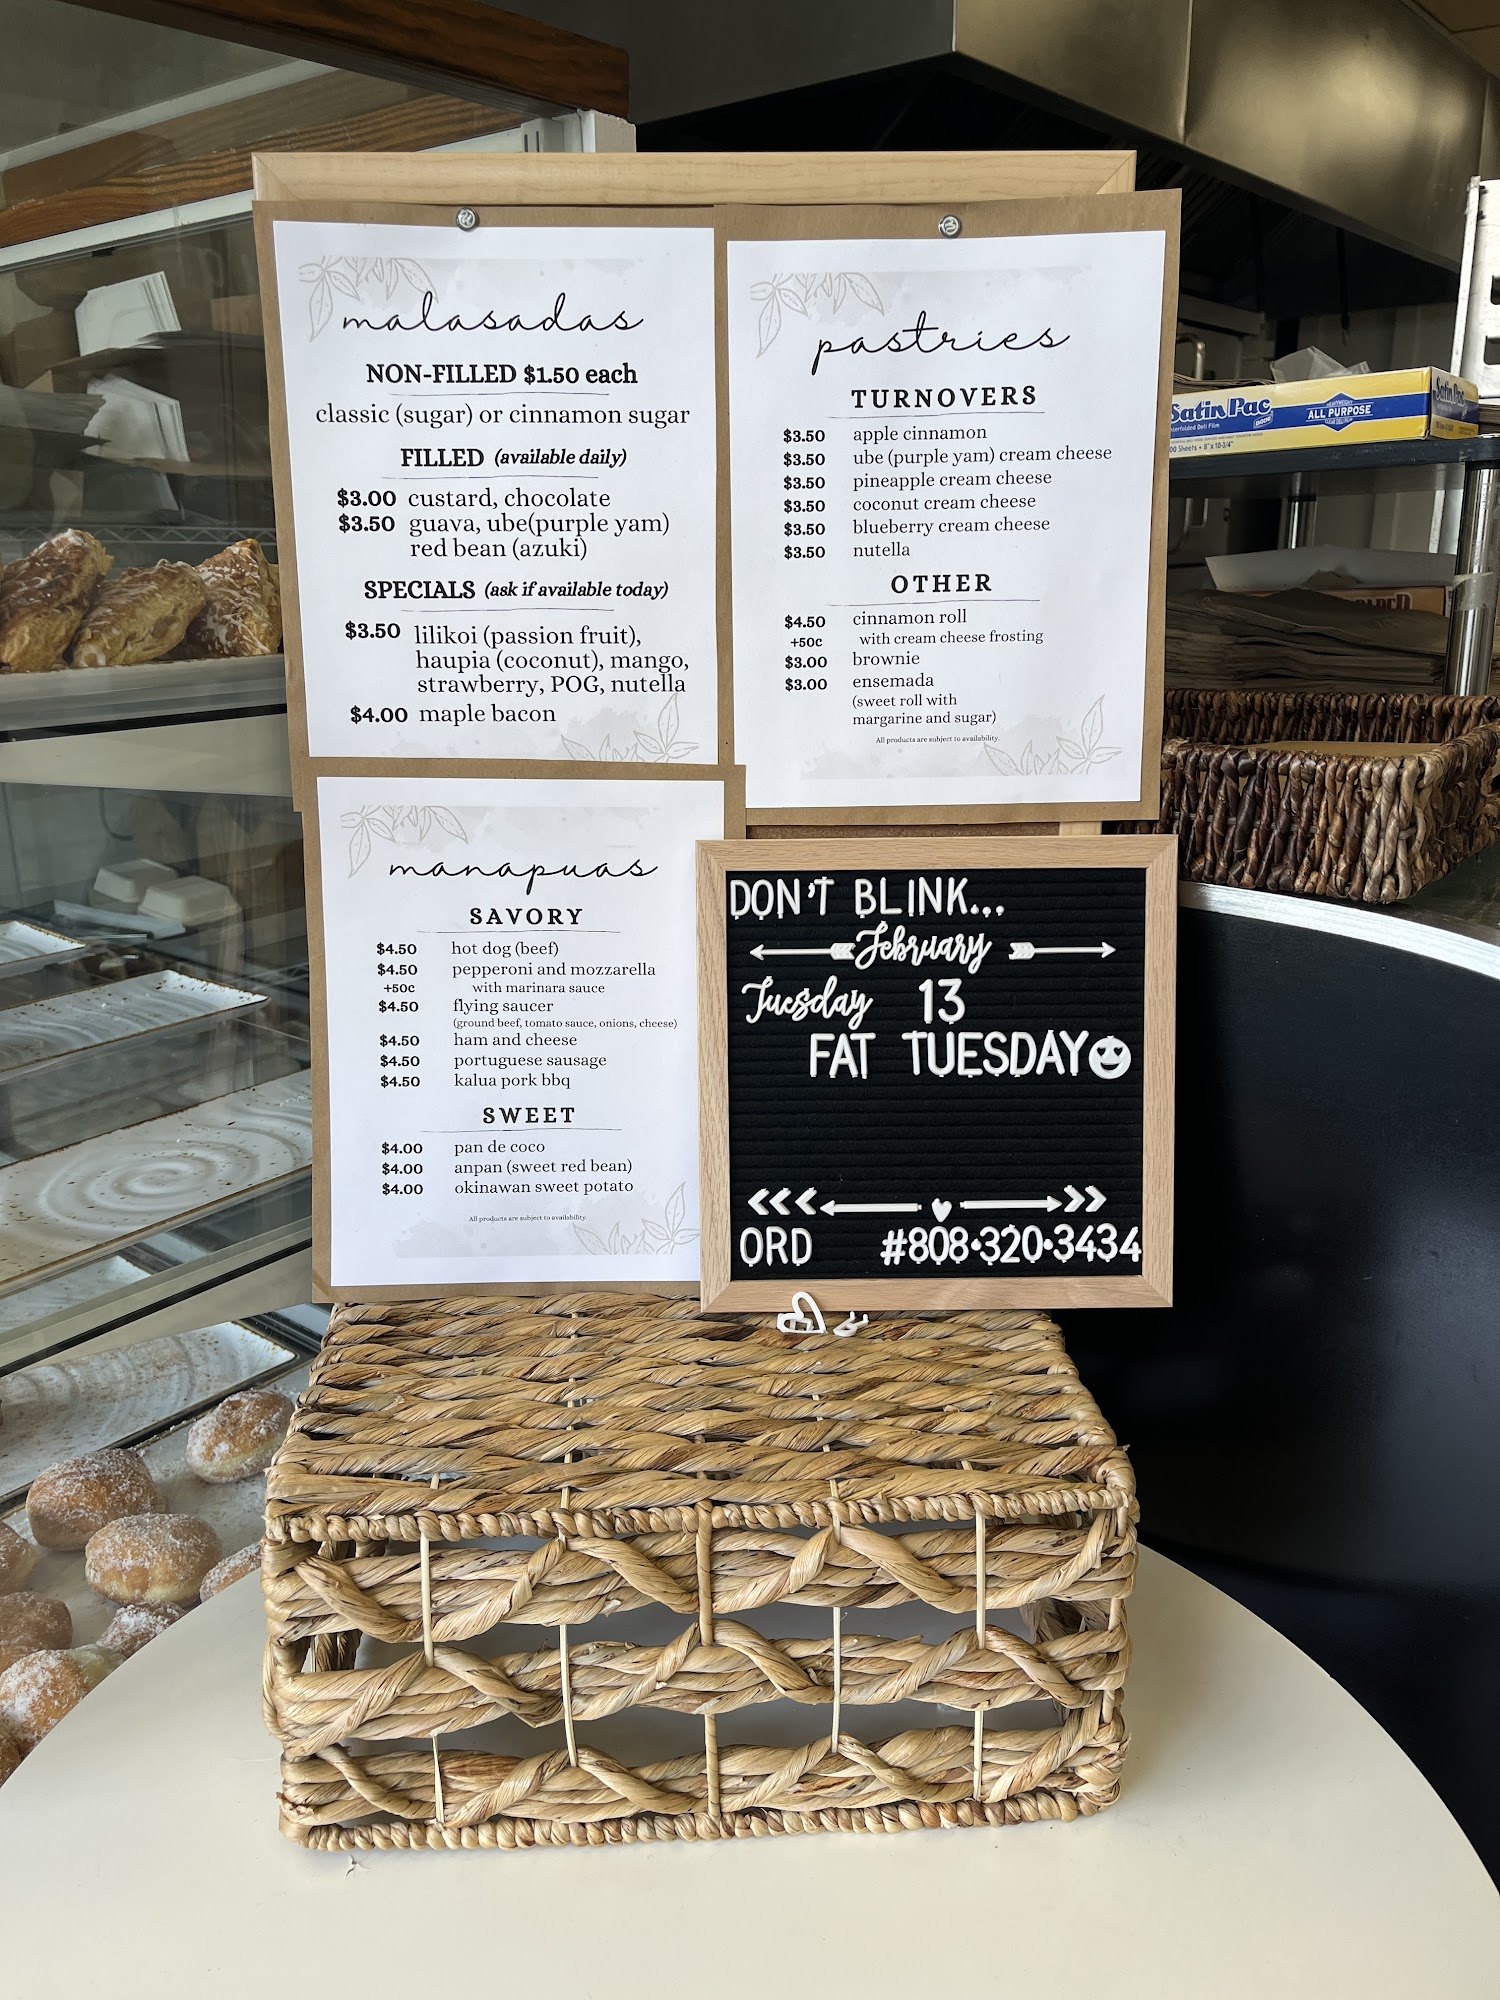 malasadas
NON-FILLED $1.50 each
classic (sugar) or cinnamon sugar
FILLED (available daily)
$3.00 custard, chocolate
$3.50 guava, ube(purple yam)
red bean (azuki)
SPECIALS (ask if available today)
$3.50 lilikoi (passion fruit),
haupia (coconut), mango,
strawberry, POG, nutella
$4.00 maple bacon
pastries
TURNOVERS
$3.50 apple cinnamon
$3.50 ube (purple yam) cream cheese
$3.50 pineapple cream cheese
$3.50 coconut cream cheese
$3.50 blueberry cream cheese
$3.50 nutella
OTHER
$4.50 cinnamon roll
+50c with cream cheese frosting
$3.00 brownie
$3.00 ensemada
(sweet roll with
margarine and sugar)
All products are subject to availability.
manapuas
SAVORY
$4.50 hot dog (beef)
$4.50 pepperoni and mozzarella
+50c with marinara sauce
$4.50 flying saucer
(ground beef, tomato sauce, onions, cheese)
$4.50 ham and cheese
$4.50 portuguese sausage
$4.50 kalua pork bbq
SWEET
$4.00 pan de coco
$4.00 anpan (sweet red bean)
$4.00 okinawan sweet potato
All products are subject to availability.
DON'T BLINK...
February
Tuesday 13
FAT TUESDAY
ORD #808·320·3434
Satin Pac
Interfolded Deli Film
ALL PURPOSE
Satin Pac